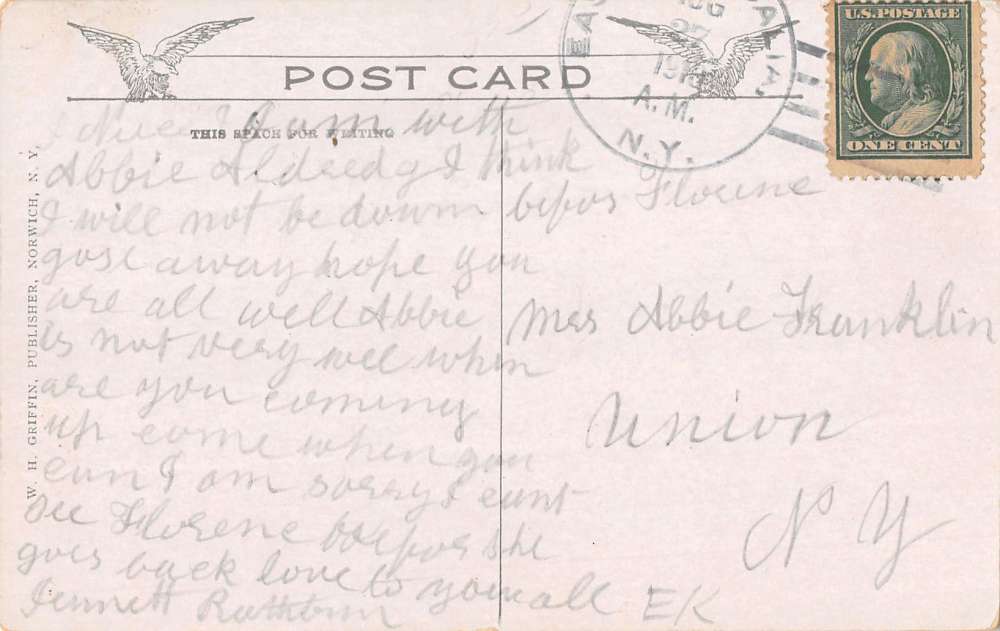 POST CARD
THIS SPACE FOR WRITING
W. H. GRIFFIN, PUBLISHER, NORWICH, N. Y.
AUG
27
A.M.
N.Y.
U.S. POSTAGE
ONE CENT
I am with
Abbie Aldredg I think
I will not be down befor Florene
gose away hope you
are all well Abbie
is not very wel when
are you coming
up come when you
can I am sorry I cant
see Florene befor she
goes back love to you all
Jennett Rathbun
EK
Mrs Abbie Franklin
Union
N Y